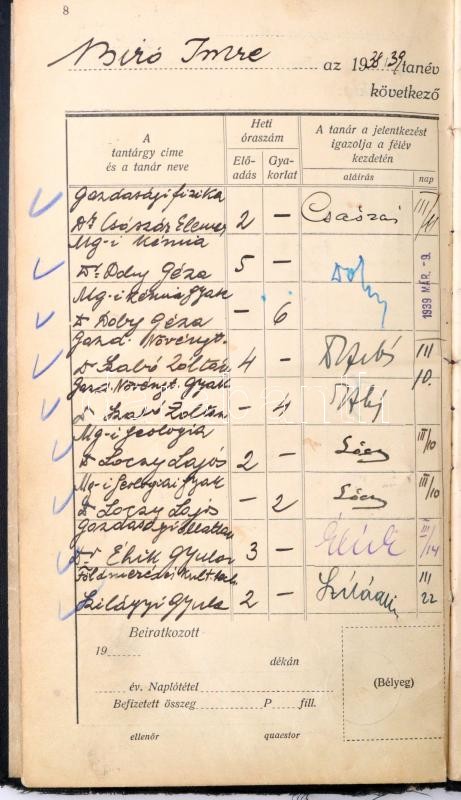 8
Biró Imre az 1938/39 tanév
következő
A
tantárgy címe
és a tanár neve
Heti
óraszám
Elő-
adás
Gya-
korlat
A tanár a jelentkezést
igazolja a félév
kezdetén
aláírás
nap
Gazdasági fizika
Dr Császár Elemér 2 — Császár III/11
Mg-i Kémia
Dr Doby Géza 5 —
Mg-i kémia gyak
Dr Doby Géza — 6 Doby 1939 MÁR. -9.
Gazd. Növényt.
Dr Szabó Zoltán 4 — III
Gazd. Növényt. Gyak
Dr Szabó Zoltán — 4 10.
Mg-i Geologia
Dr Loczy Lajos 2 — Lóczy III/10
Mg-i Geologiai Gyak
Dr Loczy Lajos — 2 Lóczy III/10
Gazdasági állattan
Dr Éhik Gyula 3 — Éhik III/14
Szilágyi Gyula 2 — Szilágyi III 22
Beiratkozott
19
dékán
év. Naplótétel
Befizetett összeg P fill.
ellenőr quaestor
(Bélyeg)